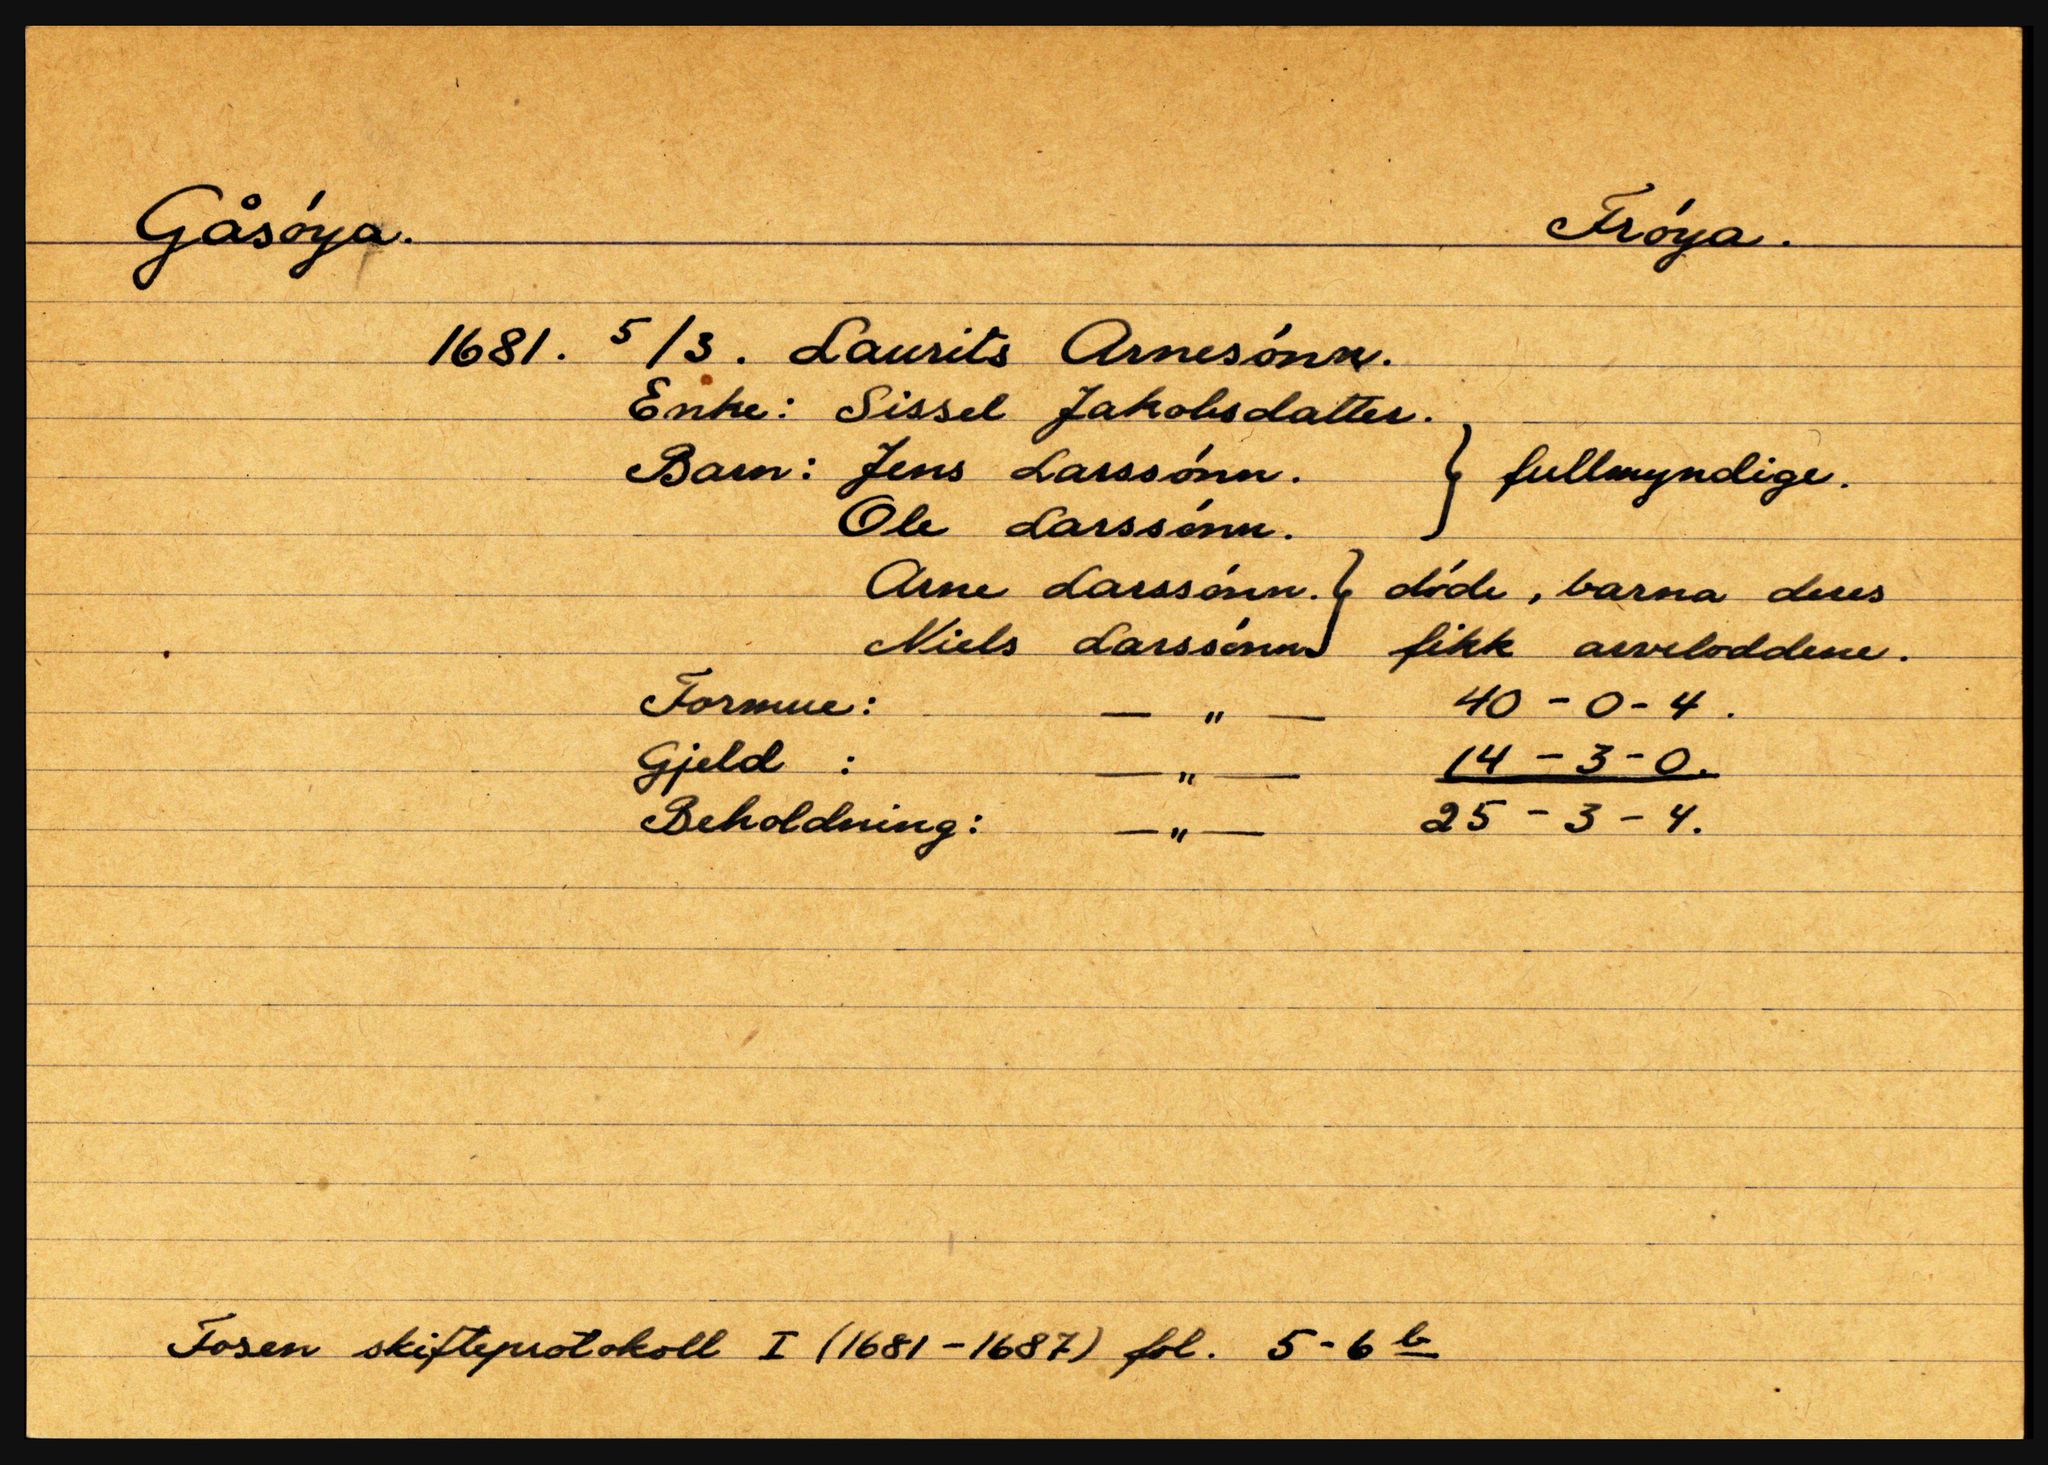 Gåsóya. Fróya.
1681. 5/3. Laurits Arnesónn.
Enke: Sissel Jakobsdatter.
Barn: Jens Larssónn. } fullmyndige.
Ole Larssónn.
Arne Larssónn. } dóde, barna deres
Niels Larssónn. fikk arveloddene.
Formue: — „ — 40 - 0 - 4.
Gjeld : — „ — 14 - 3 - 0.
Beholdning: — „ — 25 - 3 - 4.
Fosen skifteprotokoll I (1681-1687) fol. 5-6 b